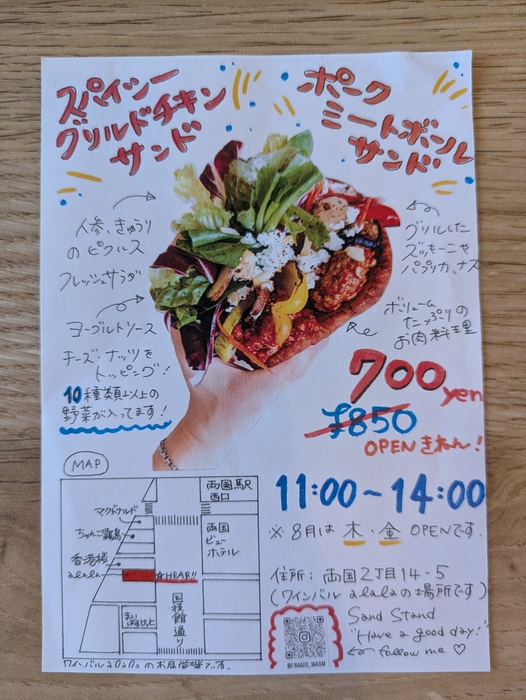 スパイシー
グリルドチキン
サンド
ポーク
ミートボール
サンド
人参、きゅうり
のピクルス
フレッシュサラダ
ヨーグルトソース
チーズ・ナッツを
トッピング!
10種類以上の
野菜が入ってます!
グリルした
ズッキーニや
パプリカ、ナス
ボリューム
たっぷりの
お肉料理
700yen
¥850
OPENきねん!
11:00~14:00
※ 8月は 木・金 OPENです。
住所: 両国2丁目14-5
(ワインバル alalaの場所です)
Sand Stand
"Have a good day!"
follow me ♡
@FRAGIO_MASM
MAP
両国駅
西口
マクドナルド
ちゃんこ霧島
両国
ビュー
ホテル
香港楼
alala
☆HEAR!!
国技館通り
ワインバルalalaのお店情報です。